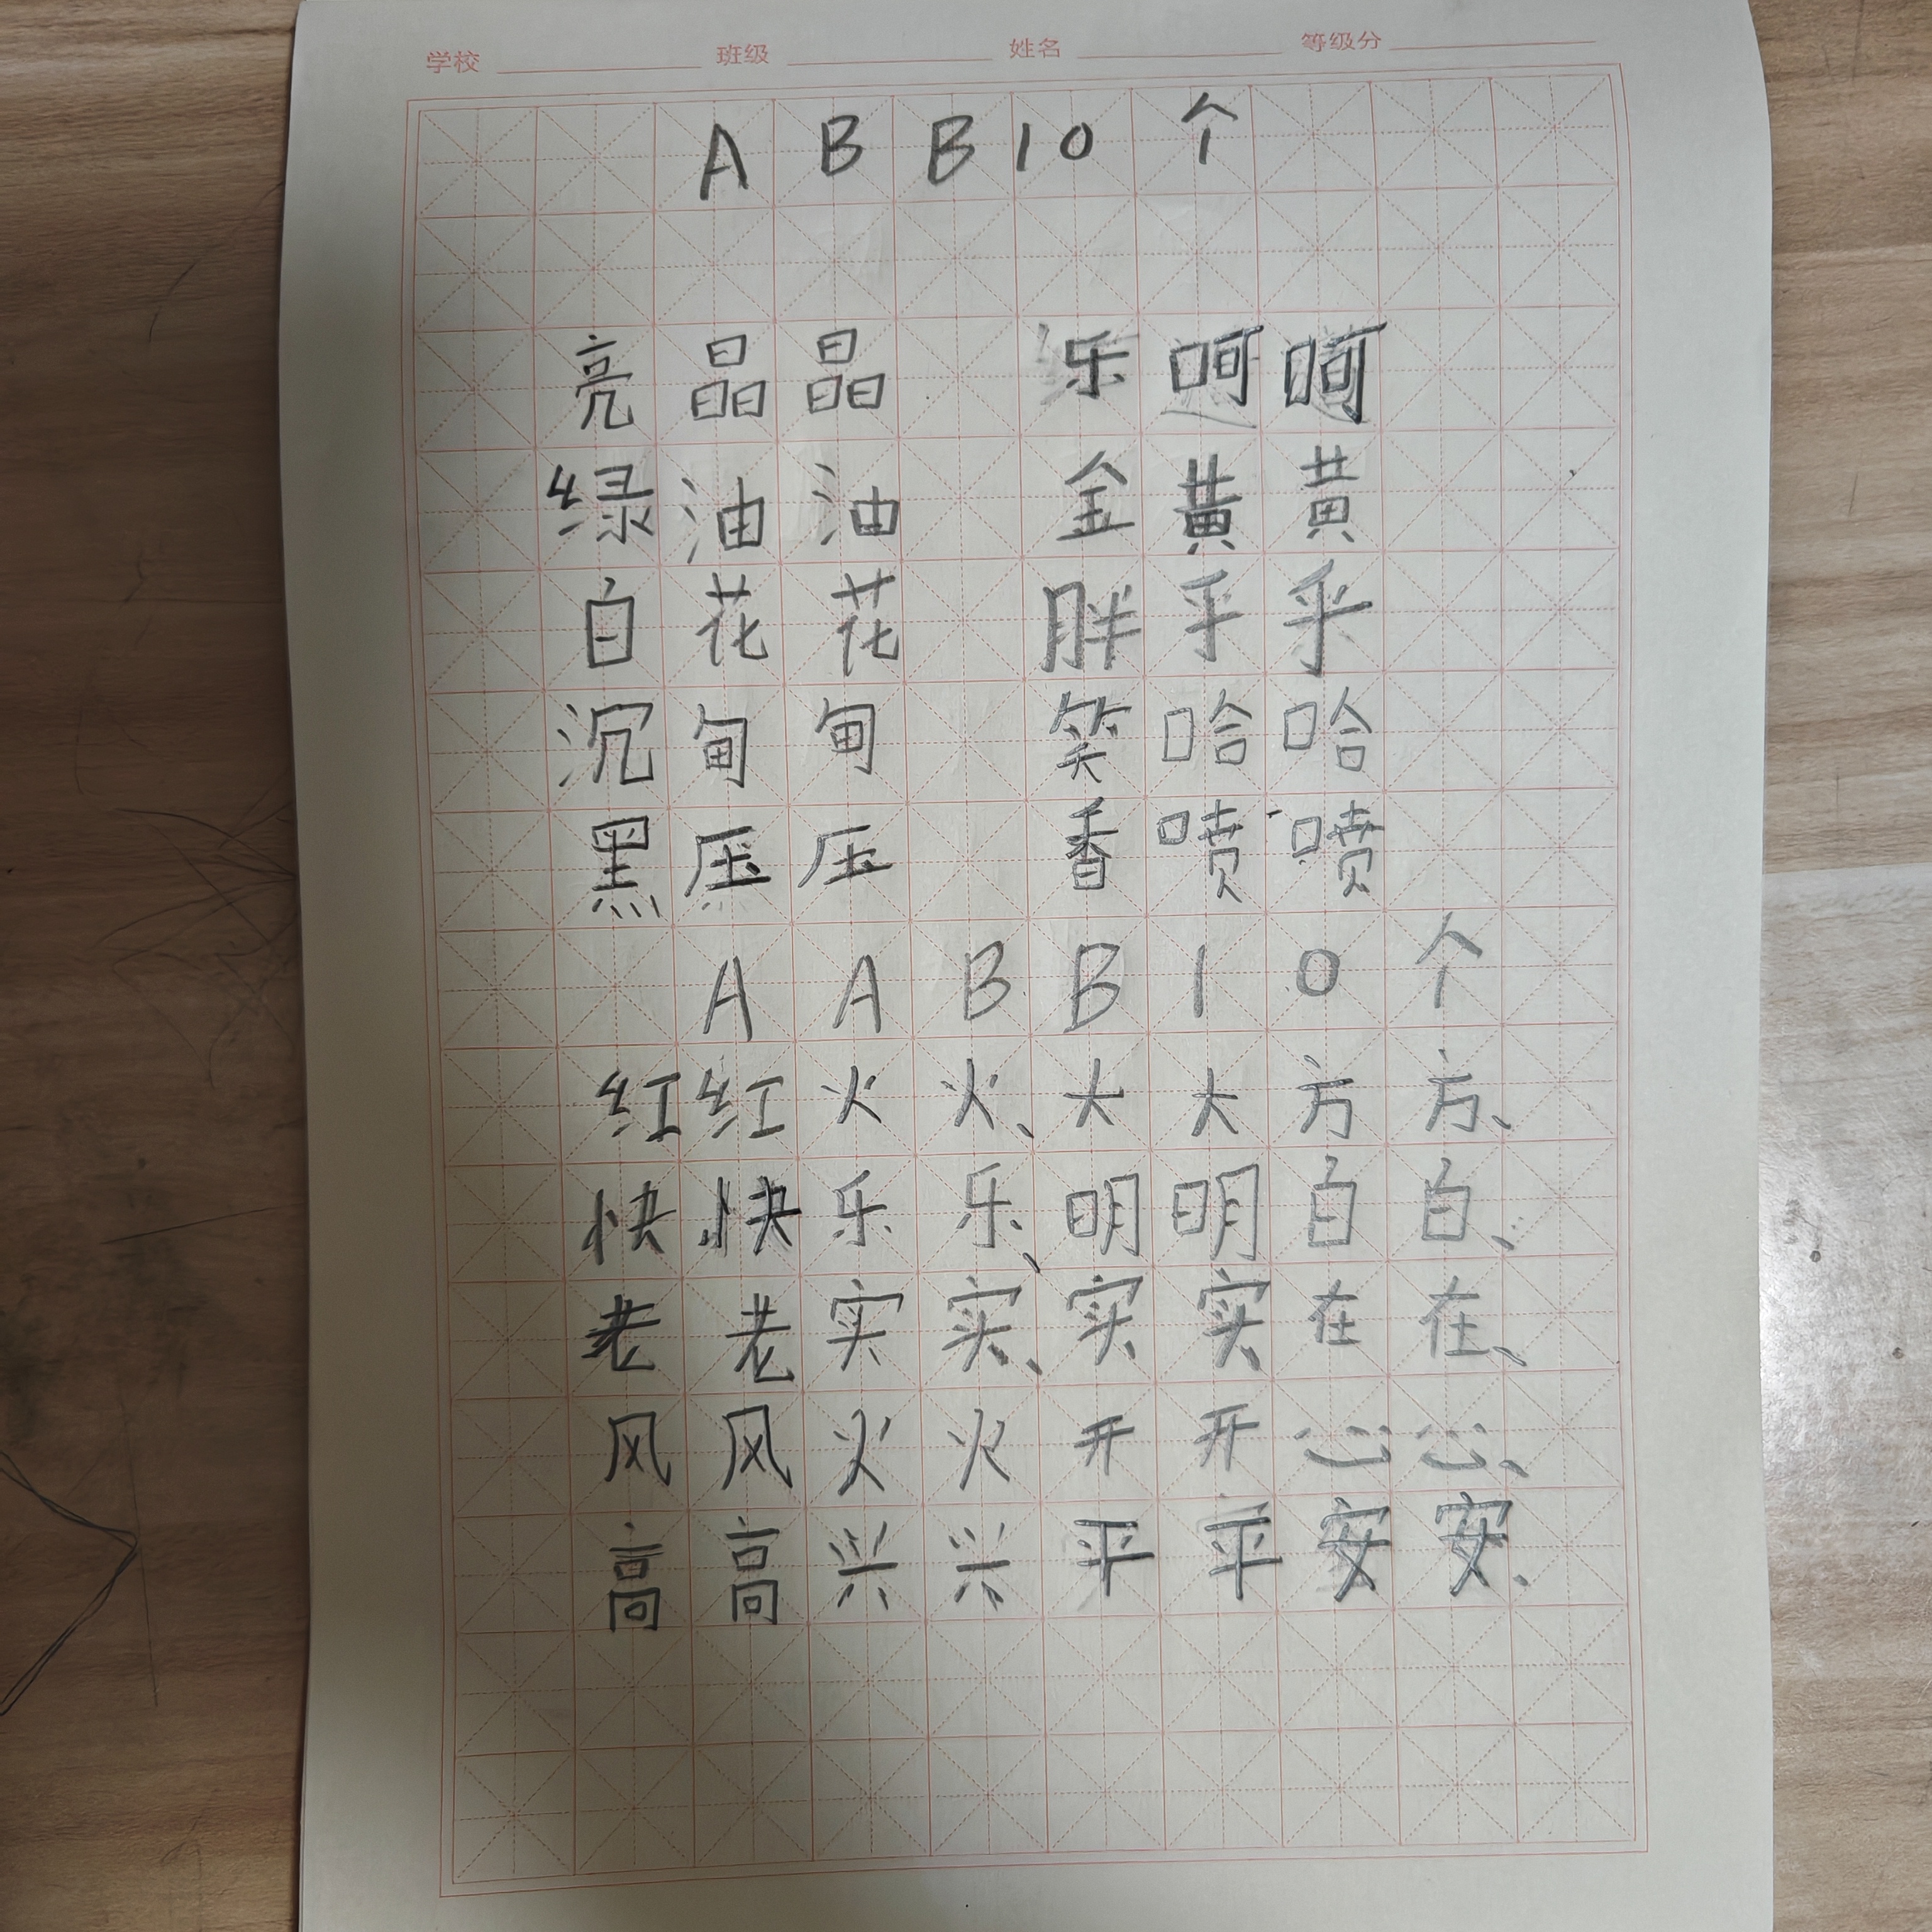 学校 班级 姓名 等级分
ABB10个
亮晶晶 乐呵呵
绿油油 金黄黄
白花花 胖乎乎
沉甸甸 笑哈哈
黑压压 香喷喷
AABB10个
红红火火、大大方方、
快快乐乐、明明白白、
老老实实、实实在在、
风风火火 开开心心、
高高兴兴 平平安安、